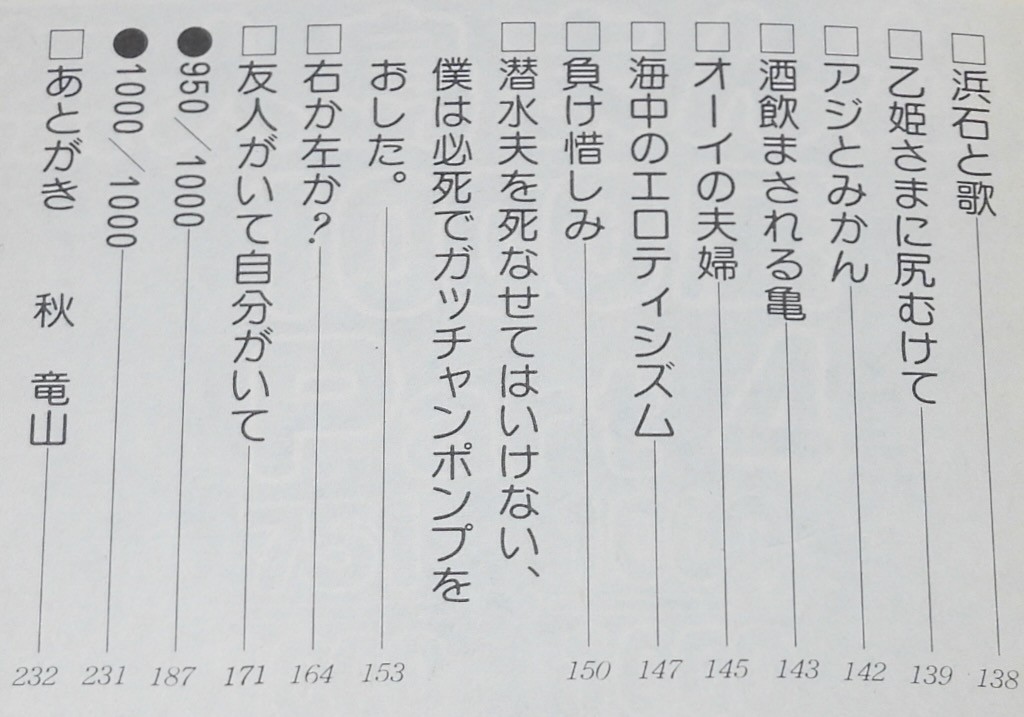 □浜石と歌 138
□乙姫さまに尻むけて 139
□アジとみかん 142
□酒飲まされる亀 143
□オーイの夫婦 145
□海中のエロティシズム 147
□負け惜しみ 150
□潜水夫を死なせてはいけない、
僕は必死でガッチャンポンプを
おした。 153
□右か左か? 164
□友人がいて自分がいて 171
●950/1000 187
●1000/1000 231
□あとがき 秋 竜山 232